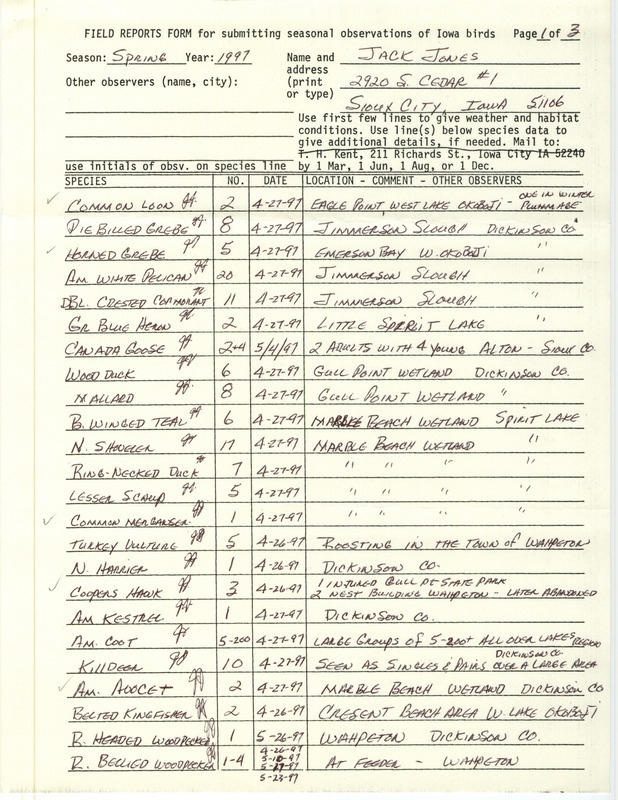 FIELD REPORTS FORM for submitting seasonal observations of Iowa birds Page 1 of 3
Season: SPRING Year: 1997 Name and JACK JONES
address
Other observers (name, city): (print 2920 S. CEDAR #1
or type)
SIOUX CITY, IOWA 51106
Use first few lines to give weather and habitat
conditions. Use line(s) below species data to
give additional details, if needed. Mail to:
T. H. Kent, 211 Richards St., Iowa City IA 52240
use initials of obsv. on species line by 1 Mar, 1 Jun, 1 Aug, or 1 Dec.
SPECIES NO. DATE LOCATION - COMMENT - OTHER OBSERVERS
✓ COMMON LOON JJ 2 4-27-97 EAGLE POINT, WEST LAKE OKOBOJI - ONE IN WINTER PLUMMAGE
PIE BILLED GREBE JJ 8 4-27-97 JIMMERSON SLOUGH DICKINSON CO
✓ HORNED GREBE JJ 5 4-27-97 EMERSON BAY W. OKOBOJI "
AM. WHITE PELICAN JJ 20 4-27-97 JIMMERSON SLOUGH "
DBL. CRESTED CORMORANT JJ 11 4-27-97 JIMMERSON SLOUGH "
GR BLUE HERON JJ 2 4-27-97 LITTLE SPIRIT LAKE "
CANADA GOOSE JJ 2+4 5/4/97 2 ADULTS WITH 4 YOUNG ALTON - SIOUX CO.
WOOD DUCK JJ 6 4-27-97 GULL POINT WETLAND DICKINSON CO.
MALLARD JJ 8 4-27-97 GULL POINT WETLAND "
B. WINGED TEAL JJ 6 4-27-97 MARBLE BEACH WETLAND SPIRIT LAKE
N. SHOVELER JJ 17 4-27-97 MARBLE BEACH WETLAND "
RING-NECKED DUCK JJ 7 4-27-97 " " " "
LESSER SCAUP JJ 5 4-27-97 " " " "
✓ COMMON MERGANSER JJ 1 4-27-97 " " " "
TURKEY VULTURE JJ 5 4-26-97 ROOSTING IN THE TOWN OF WAHPETON
N. HARRIER JJ 1 4-26-97 DICKINSON CO.
✓ COOPERS HAWK JJ 3 4-26-97 1 INJURED GULL PT STATE PARK
2 NEST BUILDING WAHPETON - LATER ABANDONED
AM KESTREL JJ 1 4-27-97 DICKINSON CO.
AM. COOT JJ 5-200 4-27-97 LARGE GROUPS OF 5-200+ ALL OVER LAKES REGION
DICKINSON CO.
KILLDEER JJ 10 4-27-97 SEEN AS SINGLES & PAIRS OVER A LARGE AREA
✓ AM. AVOCET JJ 2 4-27-97 MARBLE BEACH WETLAND DICKINSON CO
BELTED KINGFISHER JJ 2 4-26-97 CRESENT BEACH AREA W. LAKE OKOBOJI
R. HEADED WOODPECKER JJ 1 5-26-97 WAHPETON DICKINSON CO.
R. BELLIED WOODPECKER JJ 1-4 4-26-97 AT FEEDER - WAHPETON
5-23-97